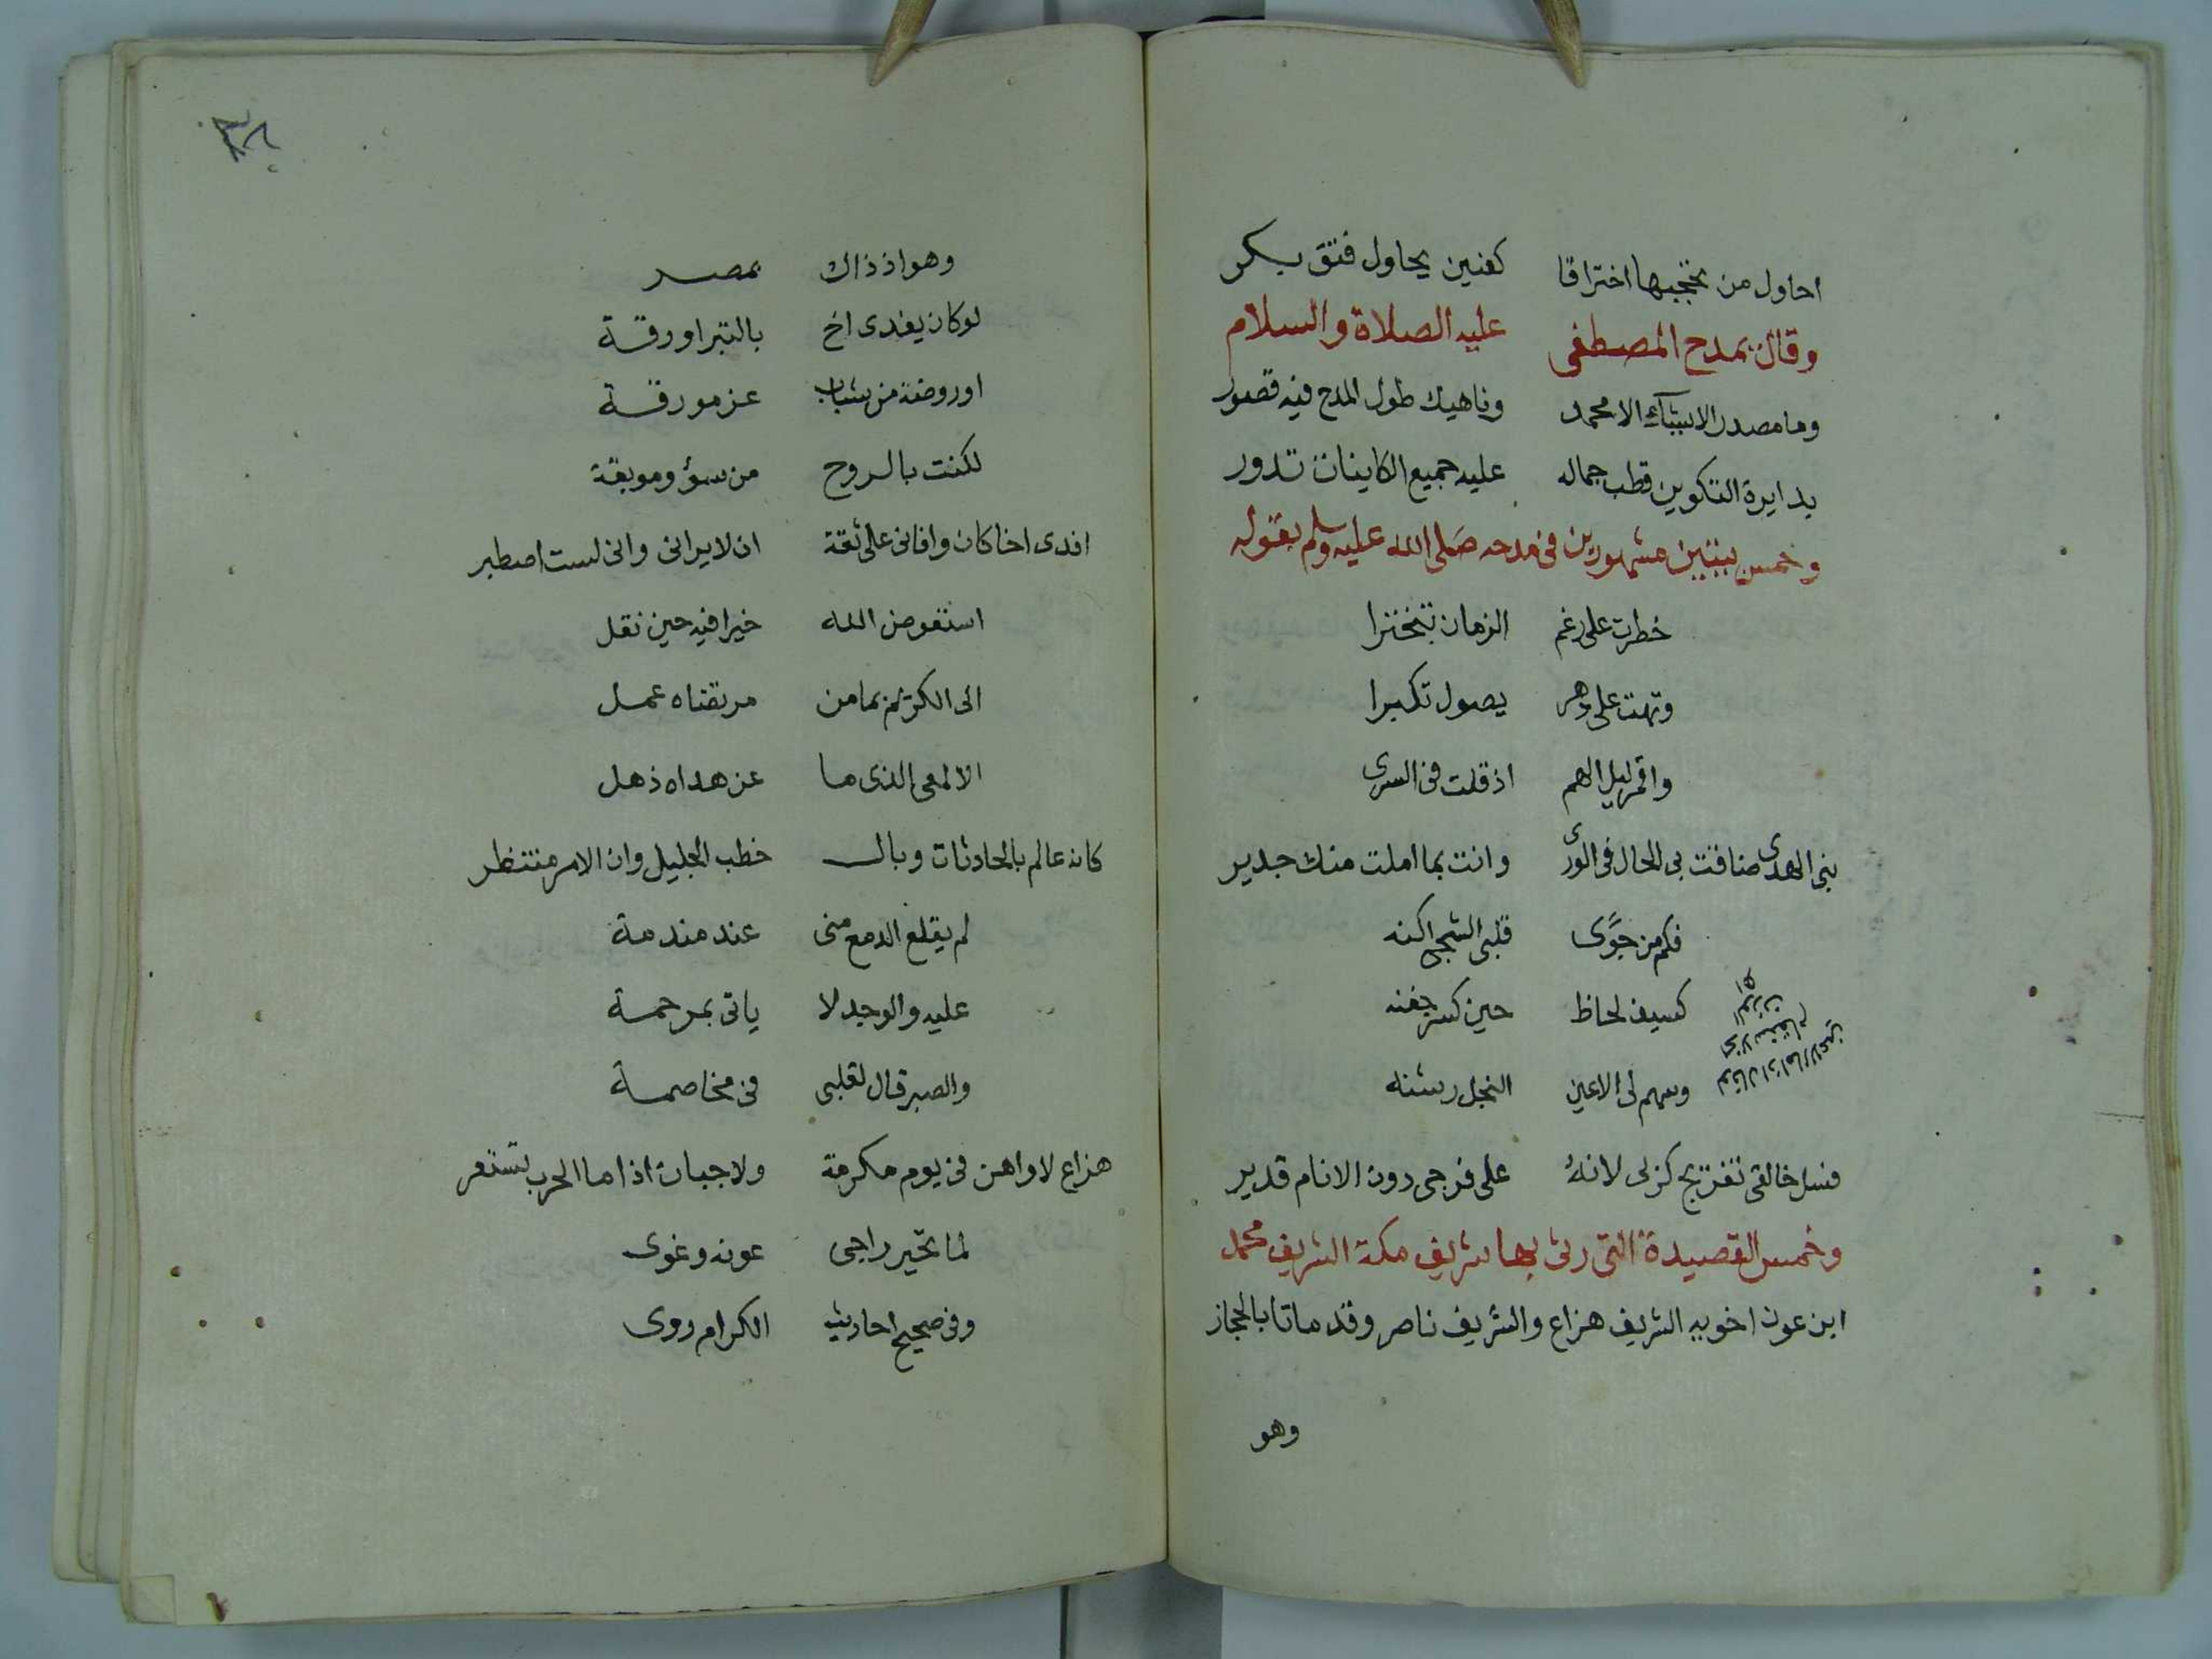 احاول من تحجبها اختراقا كعنين يحاول فتق بكر
وقال يمدح المصطفى عليه الصلاة والسلام
وما مصدر الاشيآء الا محمد وناهيك طول المدح فيه قصور
بدايرة التكوين قطب جماله عليه جميع الكاينات تدور
وخمس بيتين مشهورين فى مدحه صلى الله عليه وسلم بقوله
خطرت على رغم الزمان تبخترا
وتهت على دهر يصول تكبرا
واقمر ليل الهم اذ قلت فى السرى
نبى الهدى ضاقت بى الحال فى الورى وانت بما املت منك جدير
فكم من جوًى قلبى الشجى اكنه
كسيف لحاظ حين كسر جفنه
وسهم لى الاعين النجل رشنه
فسل خالقى تفريج كربى لانهُ على فرجى دون الانام قدير
وخمس القصيدة التى رثى بها شريف مكة الشريف محمد
ابن عون اخويه الشريف هزاع والشريف ناصر وقد ماتا بالحجاز
وهو
وهو اذ ذاك بمصر
لو كان يفدى اخ بالتبر او رقة
او روضة من شباب عز مورقة
لكنت بالروح من سؤ وموبقة
افدى اخا كان وافانى على ثقة ان لا يرانى وانى لست اصطبر
استعوض الله خيرا فيه حين نقل
الى الكريم بما من مرتقناه عمل
الالمعى الذى ما عن هداه ذهل
كانه عالم بالحادثات وبالـ خطب الجليل وان الامر منتظر
لم يقلع الدمع منى عند مندمة
عليه والوجد لا ياتى بمرحمة
والصبر قال لقلبى فى مخاصمة
هزاع لا واهن فى يوم مكرمة ولا جبان اذا ما الحرب تستعر
لما تحير راجى عونه وغوى
وفى صحيح احاديث الكرام روى